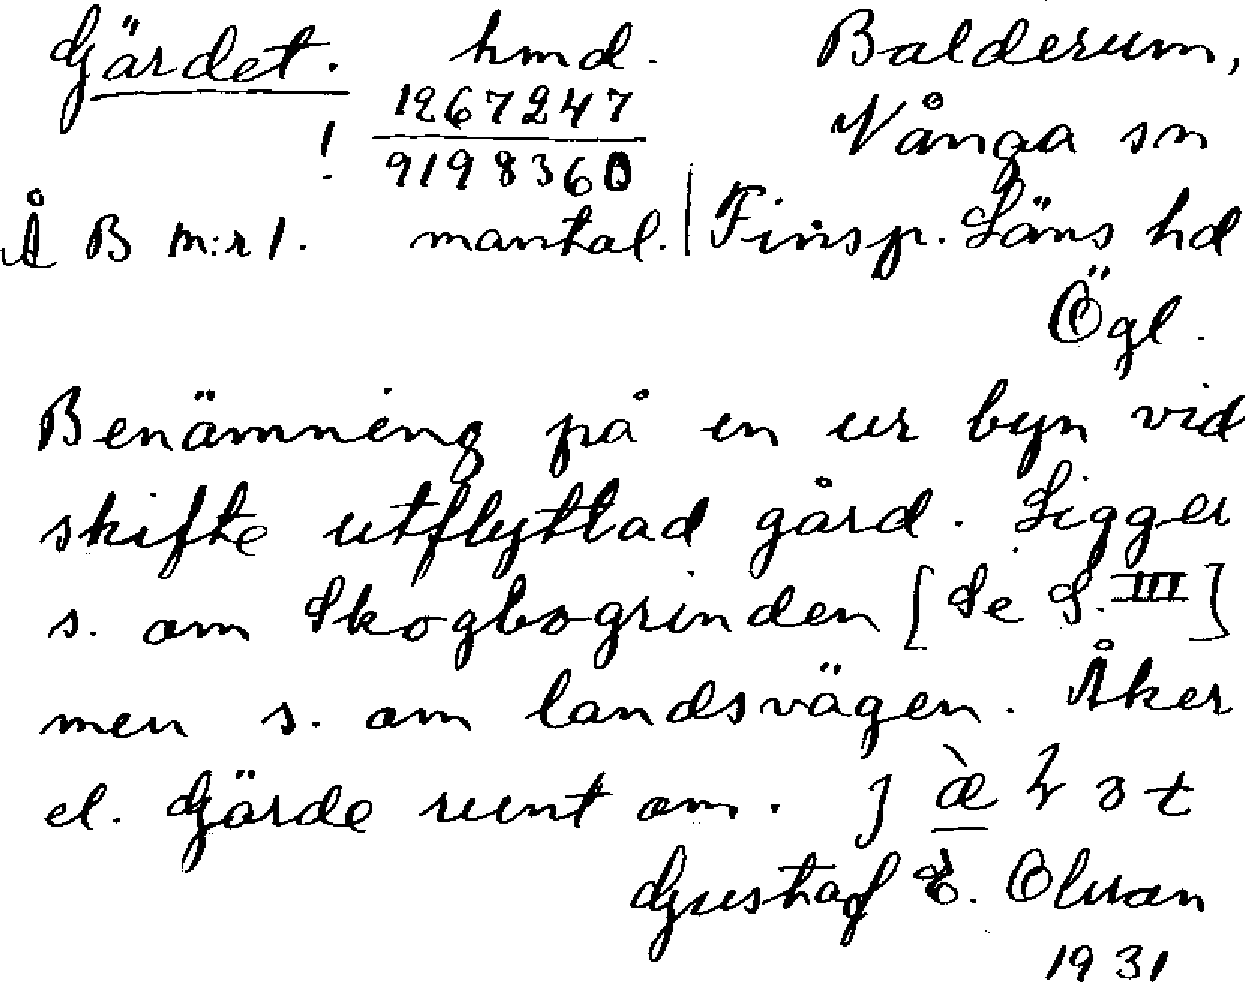 Gärdet. hmd. Balderum,
1267247 Vånga sn
! 9198360
Å B m:r 1. mantal. | Finsp. Läns hd
Ögl.
Benämning på en ur byn vid
skifte utflyttad gård. Ligger
s. om Skogbogrinden [Se S. III]
men s. om landsvägen. Åker
el. Gärde runt om.
Gustaf E. Olson
1931